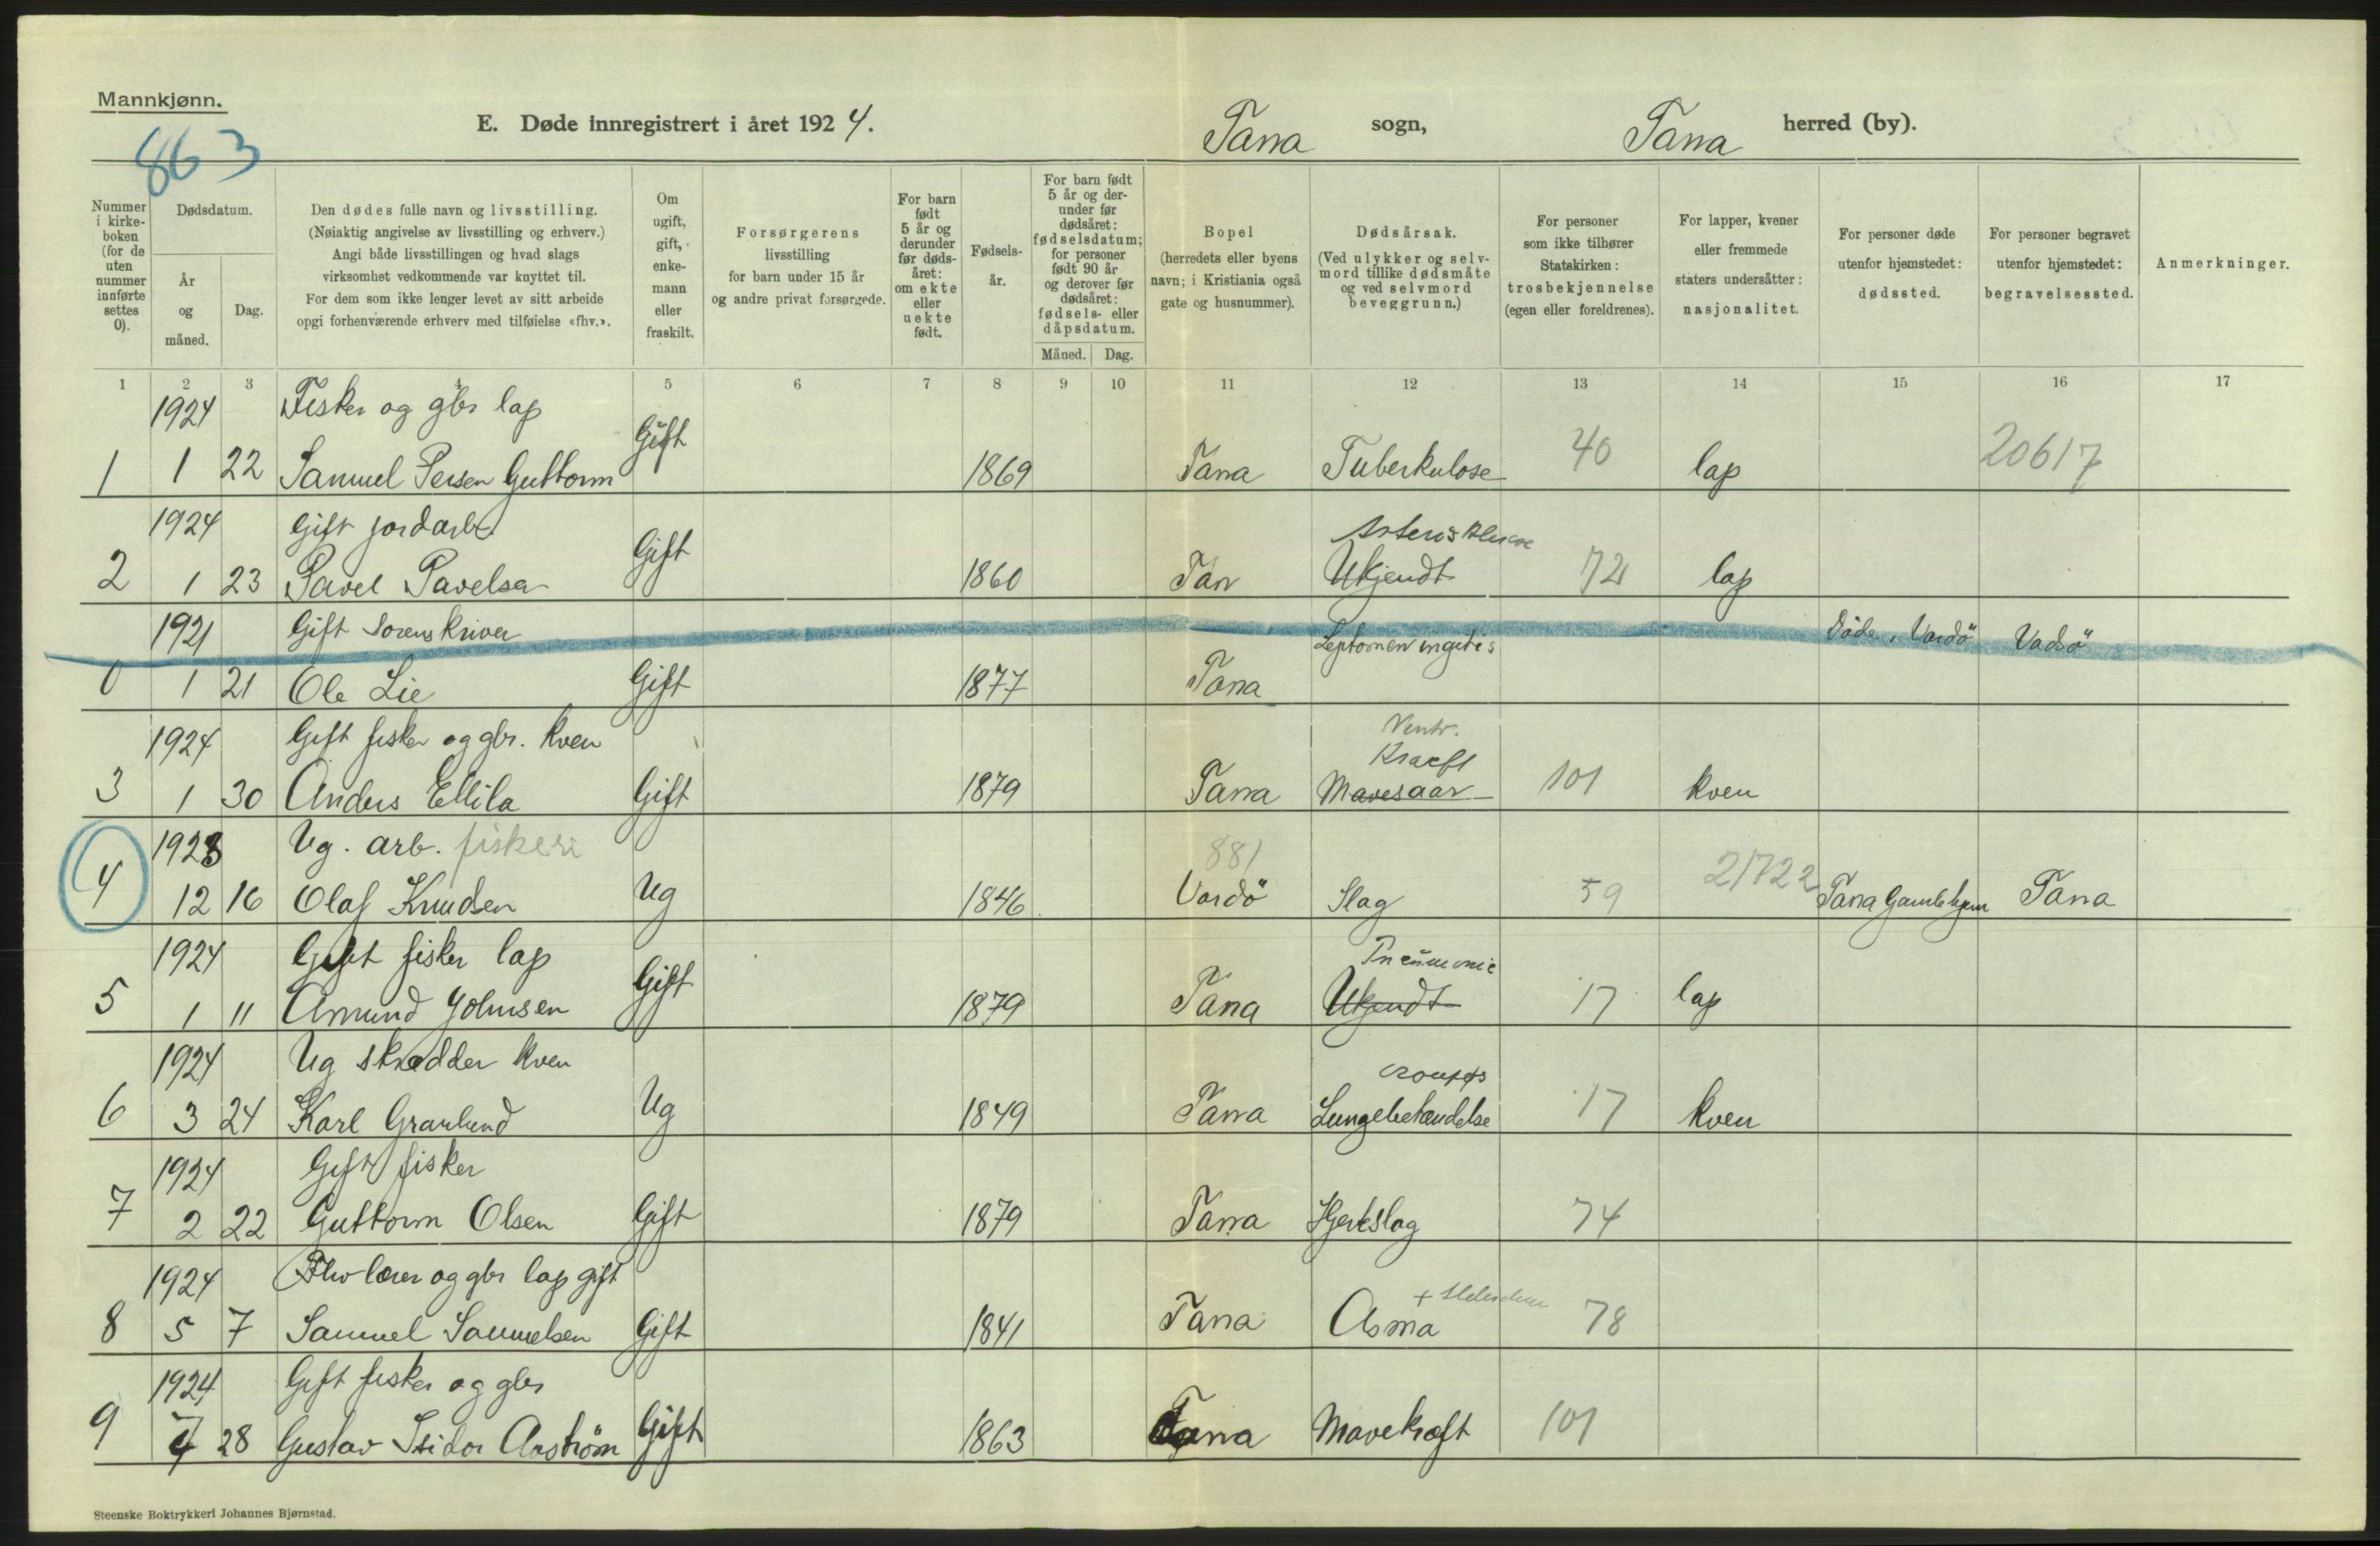 Mannkjønn.
863
E. Døde innregistrert i året 1924.
Tana sogn, Tana herred (by).
Nummer i kirke-boken (for de uten nummer innførte settes 0).
Dødsdatum.
År og måned.
Dag.
Den dødes fulle navn og livsstilling.
(Nøiaktig angivelse av livsstilling og erhverv.)
Angi både livsstillingen og hvad slags
virksomhet vedkommende var knyttet til.
For dem som ikke lenger levet av sitt arbeide
opgi forhenværende erhverv med tilføielse «fhv.».
Om ugift, gift, enke-mann eller fraskilt.
Forsørgerens
livsstilling
for barn under 15 år
og andre privat forsørgede.
For barn født 5 år og derunder før døds-året: om ekte eller uekte født.
Fødsels-år.
For barn født 5 år og der-under før dødsåret: fødselsdatum; for personer født 90 år og derover før dødsåret: fødsels- eller dåpsdatum.
Måned. Dag.
Bopel
(herredets eller byens
navn; i Kristiania også
gate og husnummer).
Dødsårsak.
(Ved ulykker og selv-
mord tillike dødsmåte
og ved selvmord
beveggrunn.)
For personer
som ikke tilhører
Statskirken:
trosbekjennelse
(egen eller foreldrenes).
For lapper, kvener
eller fremmede
staters undersåtter:
nasjonalitet.
For personer døde
utenfor hjemstedet:
dødssted.
For personer begravet
utenfor hjemstedet:
begravelsessted.
Anmerkninger.
1 2 3 4 5 6 7 8 9 10 11 12 13 14 15 16 17
1924 Fisker og gbr lap
1 1 22 Samuel Persen Guttorm Gift 1869 Tana Tuberkulose 40 lap 20617
1924 Gift jordarb.
2 1 23 Pavel Pavelsen Gift 1860 Tan Ukjendt 72 lap
1921 Gift Sorenskriver Leptomeningitis Döde i Vardö Vadsö
0 1 21 Ole Lie Gift 1877 Tana
1924 Gift fisker og gbr. kven Ventr. Kraeft
3 1 30 Anders Ellila Gift 1879 Tana Mavesaar 101 kven
1923 Ug. arb. fiskeri 881
4 12 16 Olaf Knudsen Ug 1846 Vardö Slag 59 21722 Tana Gamlehjem Tana
1924 Gift fisker lap Pneumonie
5 1 11 Amund Johnsen Gift 1879 Tana Ukjendt 17 lap
1924 Ug skrædder kven croupøs
6 3 24 Karl Granlund Ug 1849 Tana Lungebetændelse 17 kven
1924 Gift fisker
7 2 22 Guttorm Olsen Gift 1879 Tana Hjerteslag 74
1924 Fhv lærer og gbr lap gift
8 5 7 Samuel Samuelsen Gift 1841 Tana Asma 78
1924 Gift fisker og gbr
9 4 28 Gustav Isidor Aaström Gift 1863 Tana Mavekræft 101
Steenske Boktrykkeri Johannes Bjørnstad.